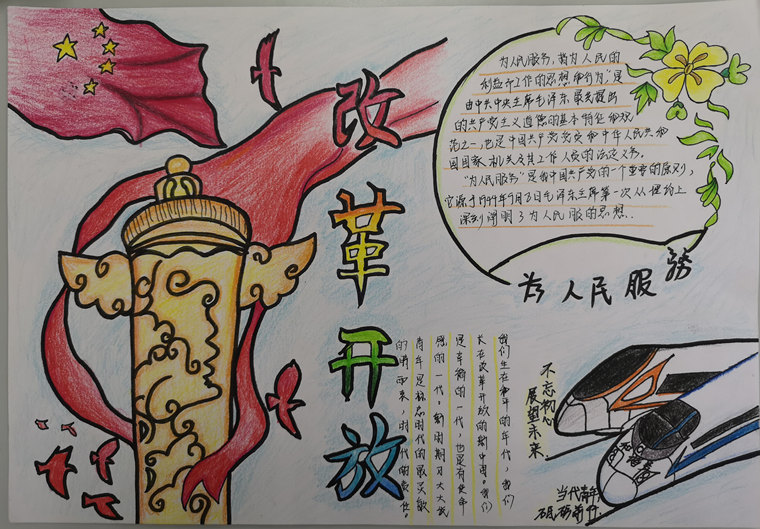 改革开放
为人民服务，指为人民的
利益而工作的思想和行为"是
由中共中央主席毛泽东最先提出
的共产党主义道德的基本特征和规
范之一，也是中国共产党党员和中华人民共和
国国家机关及其工作人员的法定义务。
"为人民服务"是我中国共产党的一个重要的原则，
它源于1944年9月8日毛泽东主席第一次从理论上
深刻阐明了为人民服的思想．．
为人民服务
我们生在和平的年代，我们
长在改革开放的新中国。我们
是幸福的一代，也是有使命
感的一代。
青年是标志时代的最灵敏
的晴雨表，时代的责任。
不忘初心
展望未来．
当代青年
砥砺前行．